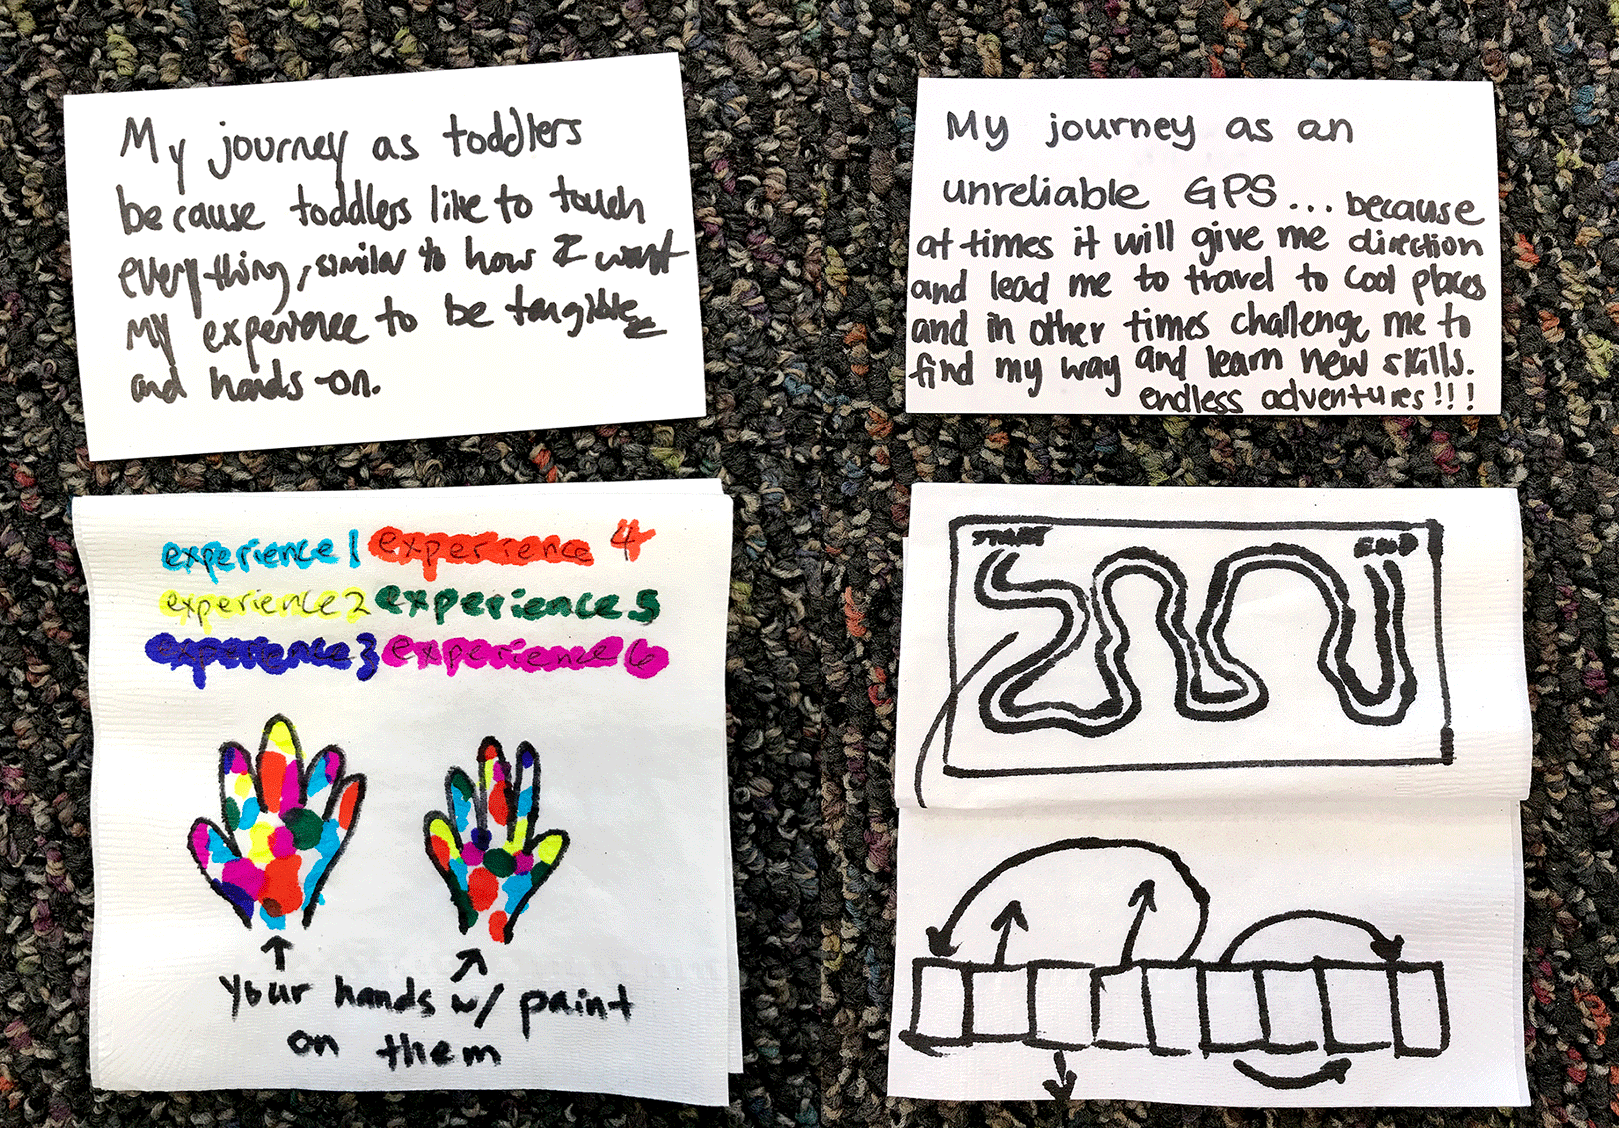 My journey as toddlers
because toddlers like to touch
everything, similar to how I want
my experience to be tangible
and hands-on.
My journey as an
unreliable GPS... because
at times it will give me direction
and lead me to travel to cool places
and in other times challenge me to
find my way and learn new skills.
endless adventures!!!
experience 1 experience 4
experience 2 experience 5
experience 3 experience 6
your hands w/ paint
on them
START END